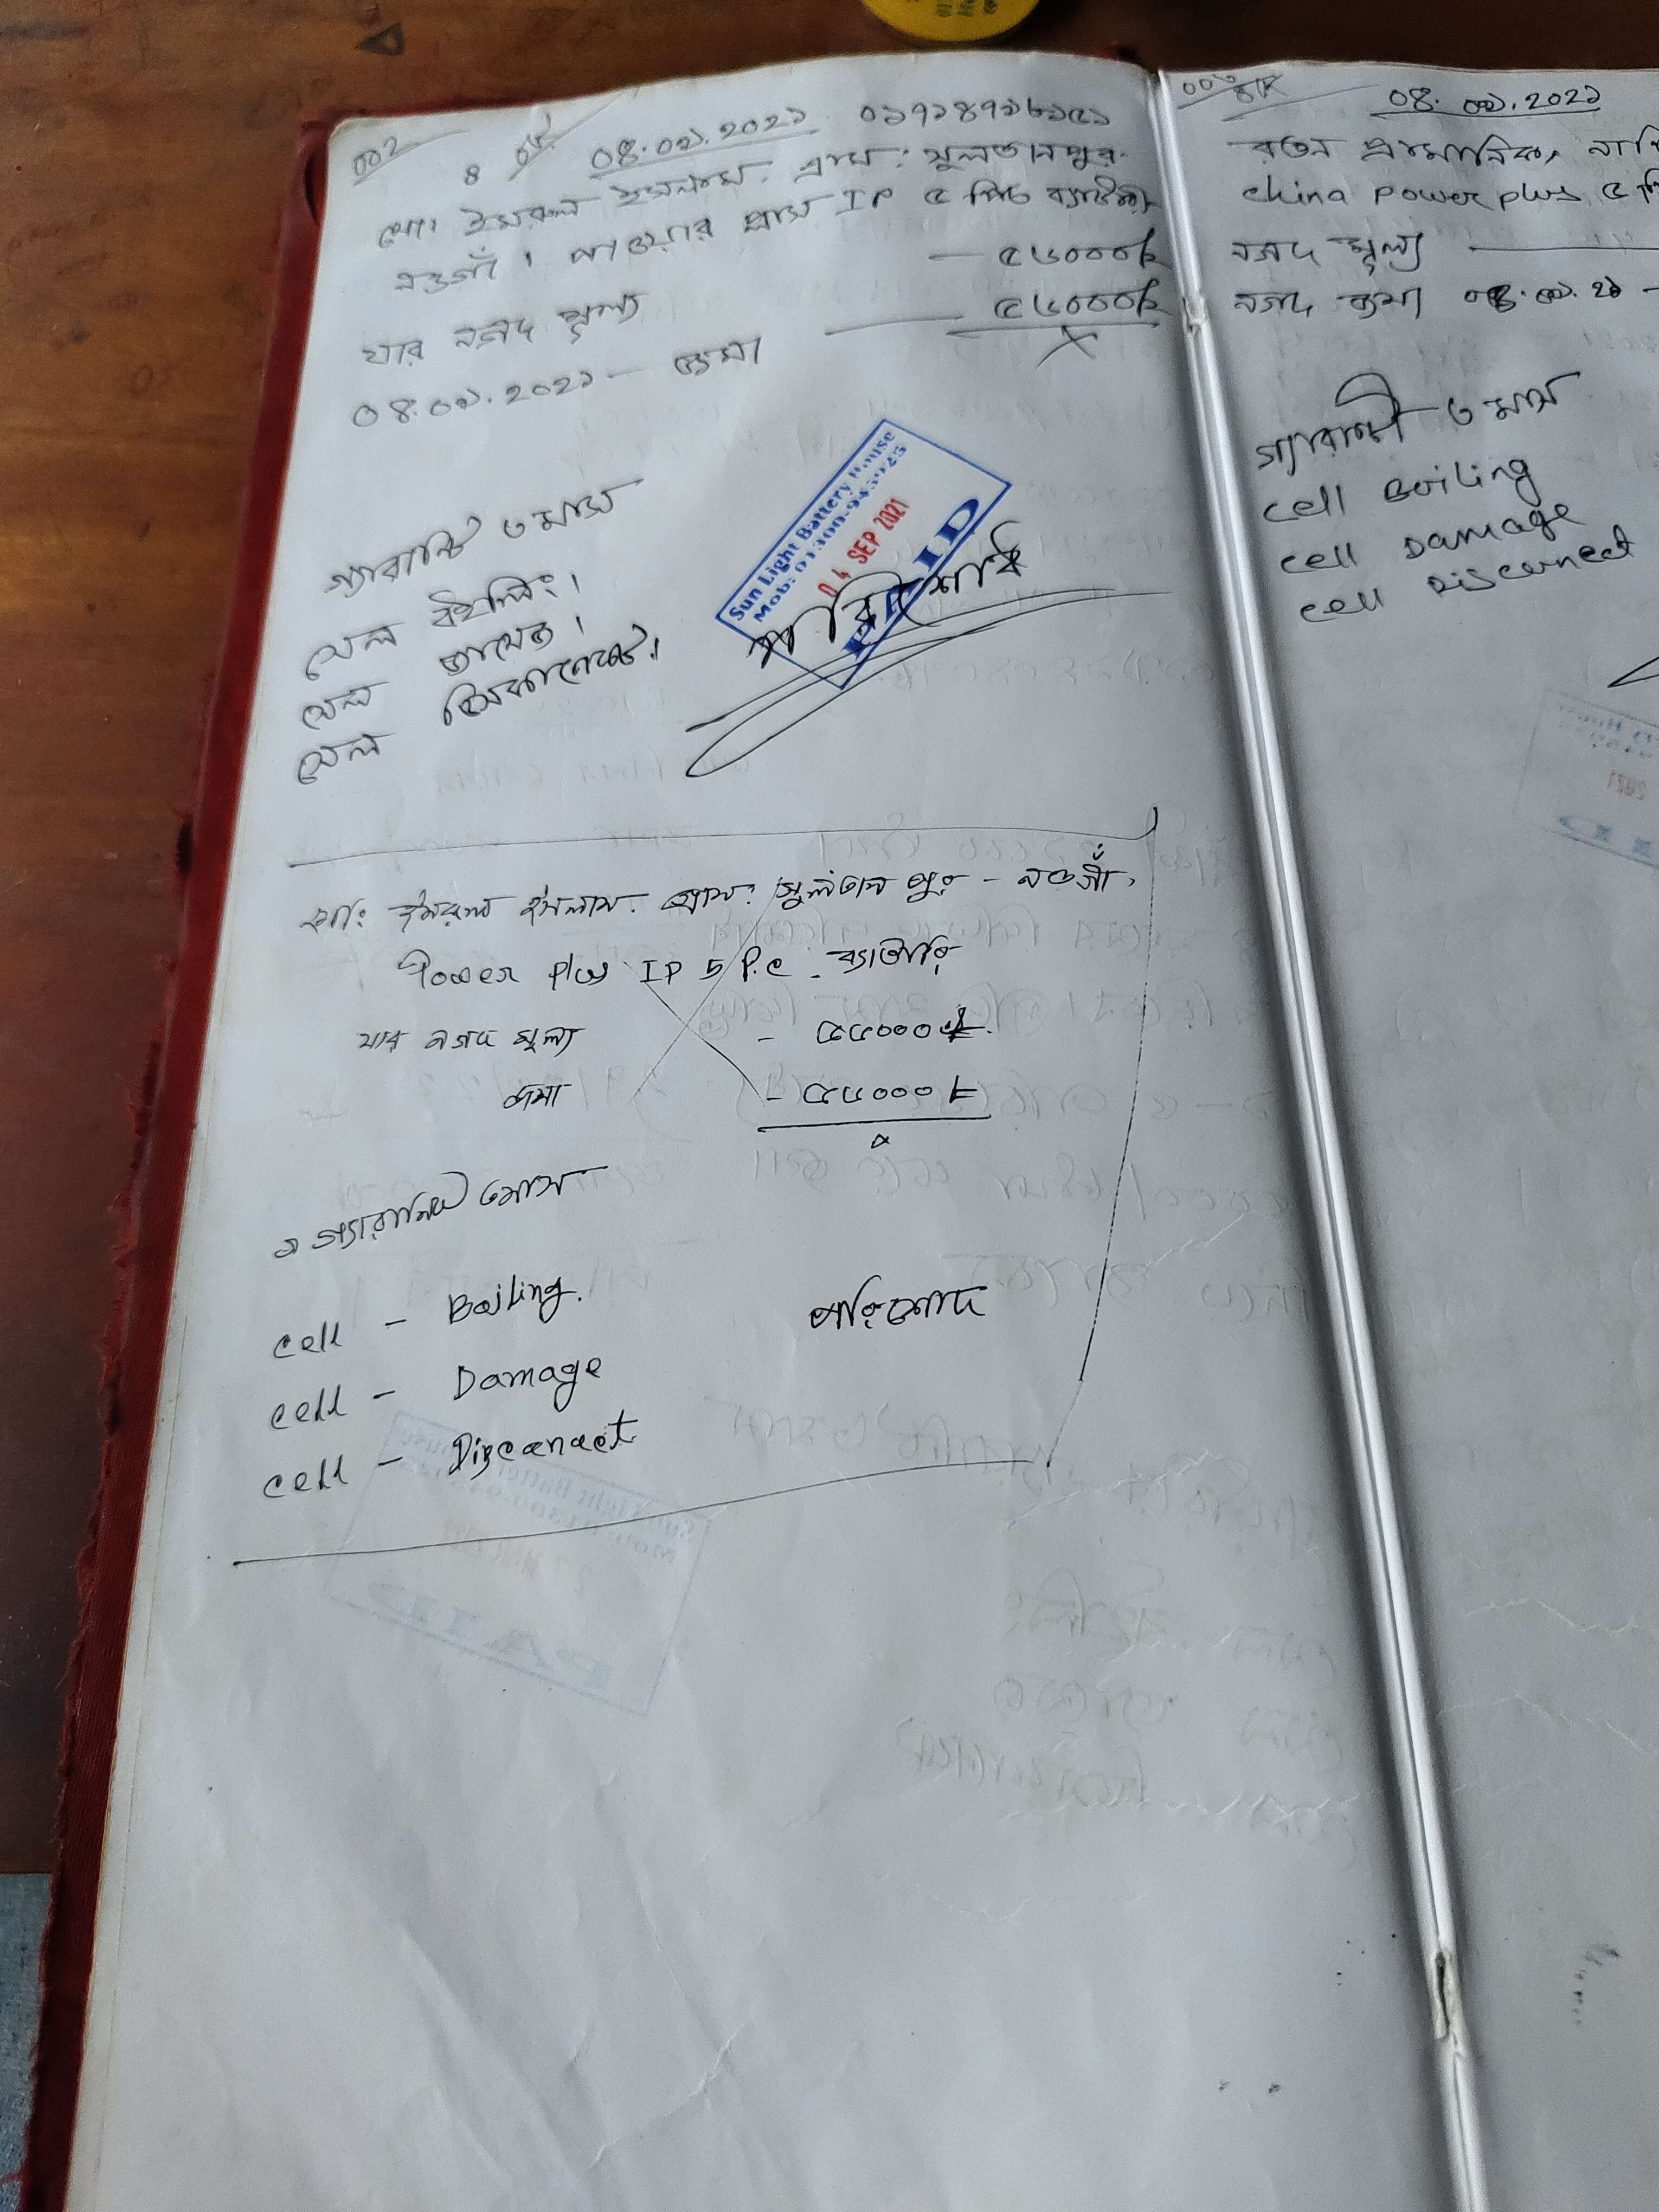 002
8 OK 08.০৯.2০2১ ০১৭১৪৭১৮১৫১
মোঃ ইমরুল ইসলাম. গ্রাম: সুলতানপুর.
নওগাঁ। পাওয়ার প্লাস IP ৫ পিচ ব্যাটারী
যার নগদ মূল্য — ৫৬০০০/=
08.০৯.2০2১ — জমা ৫৬০০০/=
×
গ্যারান্টি ৩ মাস
সেল বয়লিং।
সেল ড্যামেজ।
সেল ডিসকানেক্ট।
Sun Light Battery House
Mob: 01300-943925
04 SEP 2021
PAID
পরিশোধ
মো: ইমরুল ইসলাম. গ্রাম: সুলতান পুর - নওগাঁ,
Power Plus IP 5 P.c. ব্যাটারি
যার নগদ মূল্য - ৫৫০০০
জমা - ৫৫০০০
×
গ্যারান্টি ৩মাস
cell - Boiling.
cell - Damage
cell - Discanact
পরিশোদ
00৩ OK
08. ০৯.2০2১
রতন প্রামানিক,
china power plus ৫
নগদ মূল্য
নগদ জমা 08.০৯.2১ -
গ্যারান্টী ৩ মাস
cell Boiling
cell Damage
cell Disconnect